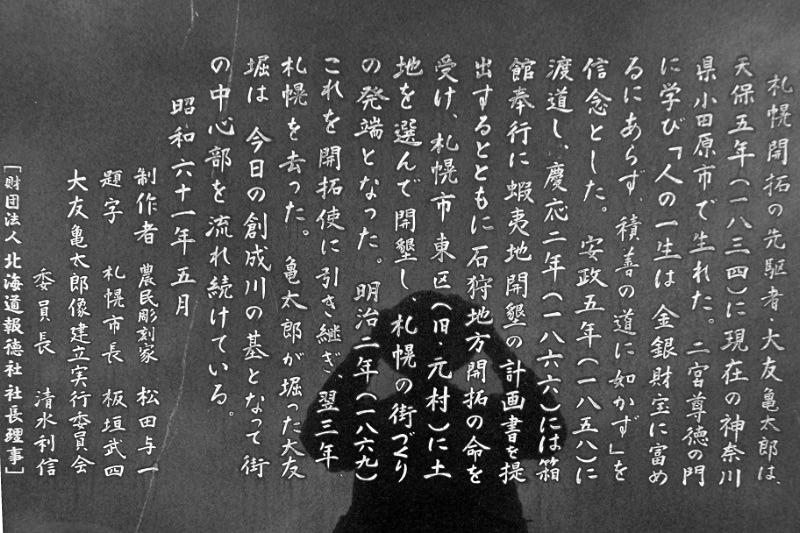 札幌開拓の先駆者 大友亀太郎は、
天保五年(一八三四)に現在の神奈川
県小田原市で生れた。二宮尊徳の門
に学び「人の一生は 金銀財宝に富め
るにあらず、積善の道に如かず」を
信念とした。 安政五年(一八五八)に
渡道し、慶応二年(一八六六)には箱
館奉行に蝦夷地開墾の計画書を提
出するとともに石狩地方開拓の命を
受け、札幌市東区(旧・元村)に土
地を選んで開墾し、札幌の街づくり
の発端となった。明治二年(一八六九)
これを開拓使に引き継ぎ、翌三年、
札幌を去った。 亀太郎が堀った大友
堀は 今日の創成川の基となって街
の中心部を流れ続けている。
昭和六十一年五月
制作者 農民彫刻家 松田与一
題字 札幌市長 板垣武四
大友亀太郎像建立実行委員会
委員長 清水利信
[財団法人 北海道報徳社 社長理事]